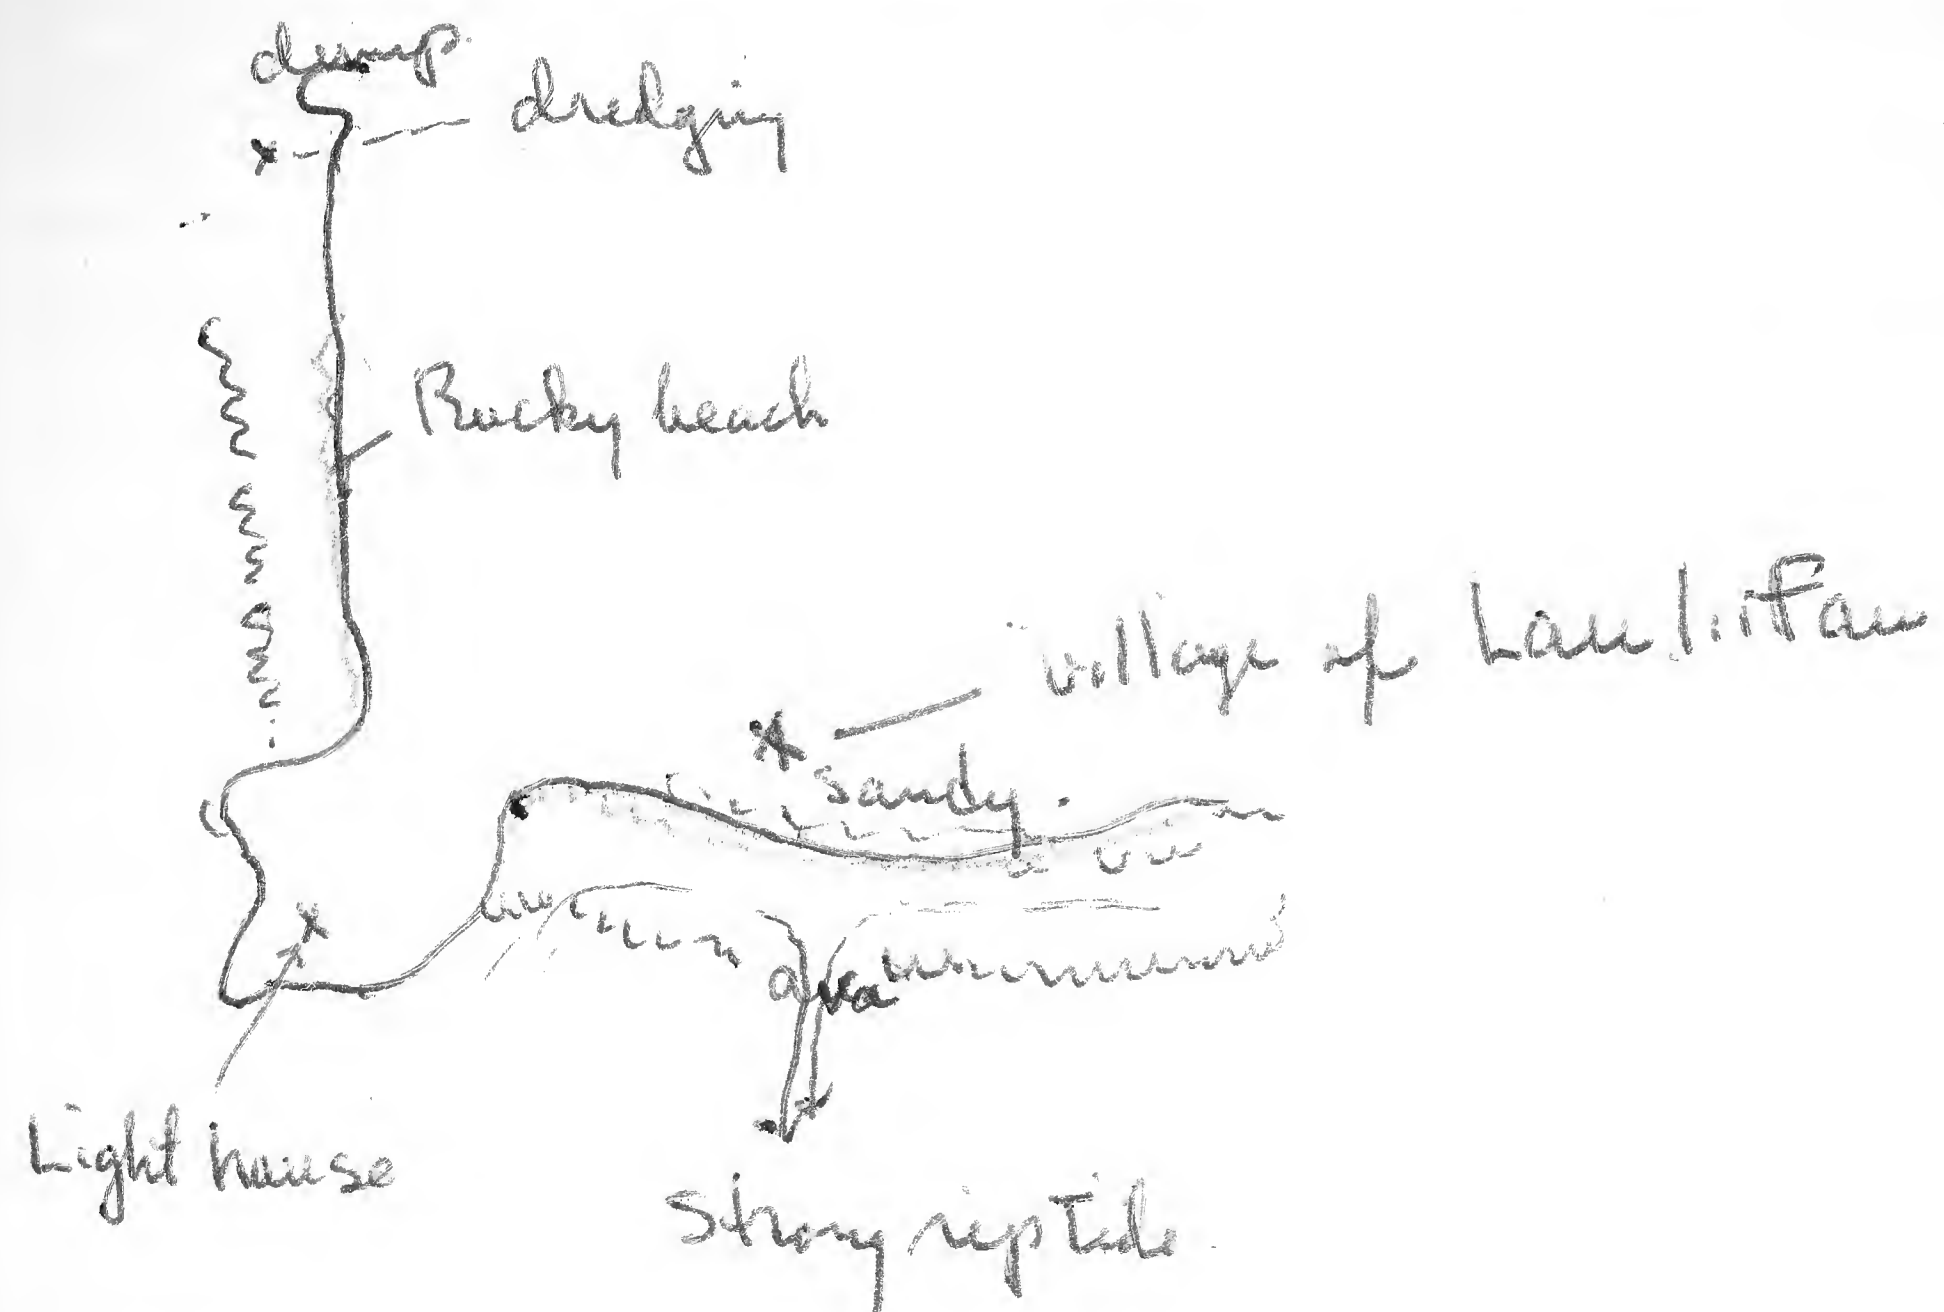 dump
dredging
Rocky beach
village of
sandy
Light house
Strong rip Tide